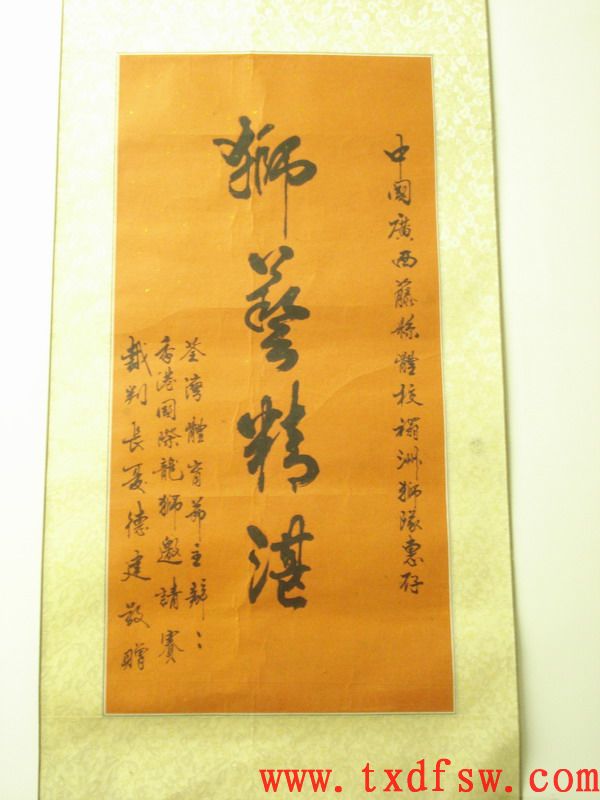 中國廣西藤縣體校禤洲獅隊惠存
獅藝精湛
荃灣體育
香港國際龍獅邀請賽
裁判長夏德建敬贈
www.txdfsw.com